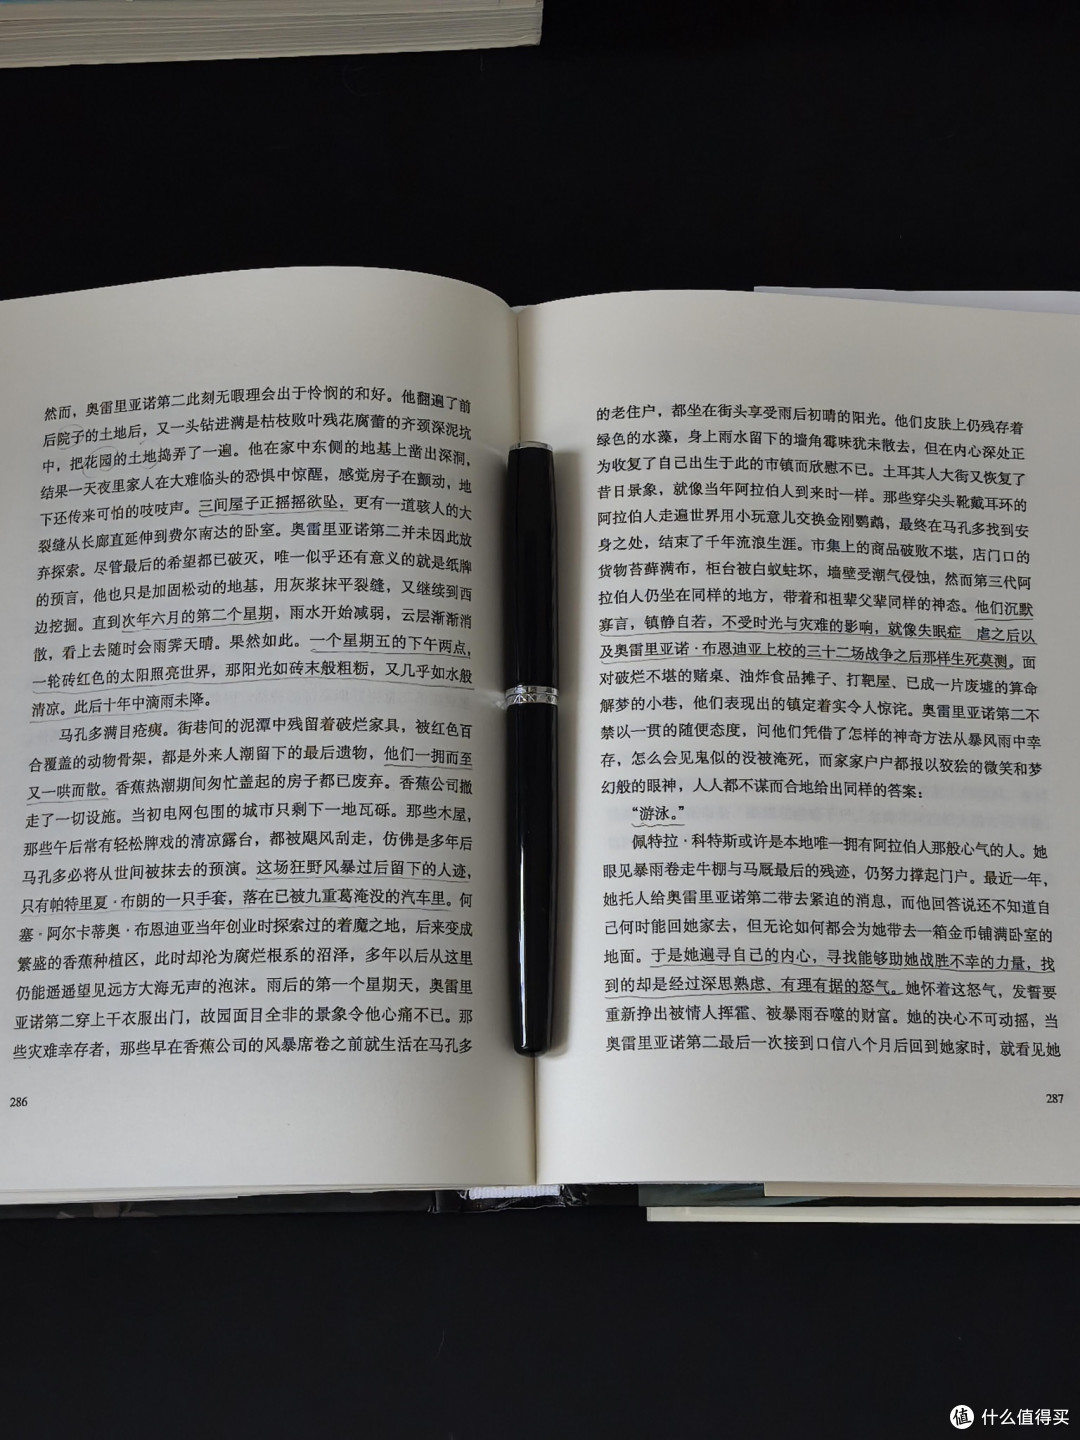 然而，奥雷里亚诺第二此刻无暇理会出于怜悯的和好。他翻遍了前
后院子的土地后，又一头钻进满是枯枝败叶残花腐蕾的齐颈深泥坑
中，把花园的土地捣弄了一遍。他在家中东侧的地基上凿出深洞，
结果一天夜里家人在大难临头的恐惧中惊醒，感觉房子在颤动，地
下还传来可怕的吱吱声。三间屋子正摇摇欲坠，更有一道骇人的大
裂缝从长廊直延伸到费尔南达的卧室。奥雷里亚诺第二并未因此放
弃探索。尽管最后的希望都已破灭，唯一似乎还有意义的就是纸牌
的预言，他也只是加固松动的地基，用灰浆抹平裂缝，又继续到西
边挖掘。直到次年六月的第二个星期，雨水开始减弱，云层渐渐消
散，看上去随时会雨霁天晴。果然如此。一个星期五的下午两点，
一轮砖红色的太阳照亮世界，那阳光如砖末般粗粝，又几乎如水般
清凉。此后十年中滴雨未降。
马孔多满目疮痍。街巷间的泥潭中残留着破烂家具，被红色百
合覆盖的动物骨架，都是外来人潮留下的最后遗物，他们一拥而至
又一哄而散。香蕉热潮期间匆忙盖起的房子都已废弃。香蕉公司撤
走了一切设施。当初电网包围的城市只剩下一地瓦砾。那些木屋，
那些午后常有轻松牌戏的清凉露台，都被飓风刮走，仿佛是多年后
马孔多必将从世间被抹去的预演。这场狂野风暴过后留下的人迹，
只有帕特里夏·布朗的一只手套，落在已被九重葛淹没的汽车里。何
塞·阿尔卡蒂奥·布恩迪亚当年创业时探索过的着魔之地，后来变成
繁盛的香蕉种植区，此时却沦为腐烂根系的沼泽，多年以后从这里
仍能遥遥望见远方大海无声的泡沫。雨后的第一个星期天，奥雷里
亚诺第二穿上干衣服出门，故园面目全非的景象令他心痛不已。那
些灾难幸存者，那些早在香蕉公司的风暴席卷之前就生活在马孔多
286
的老住户，都坐在街头享受雨后初晴的阳光。他们皮肤上仍残存着
绿色的水藻，身上雨水留下的墙角霉味犹未散去，但在内心深处正
为收复了自己出生于此的市镇而欣慰不已。土耳其人大街又恢复了
昔日景象，就像当年阿拉伯人到来时一样。那些穿尖头靴戴耳环的
阿拉伯人走遍世界用小玩意儿交换金刚鹦鹉，最终在马孔多找到安
身之处，结束了千年流浪生涯。市集上的商品破败不堪，店门口的
货物苔藓满布，柜台被白蚁蛀坏，墙壁受潮气侵蚀，然而第三代阿
拉伯人仍坐在同样的地方，带着和祖辈父辈同样的神态。他们沉默
寡言，镇静自若，不受时光与灾难的影响，就像失眠症 虐之后以
及奥雷里亚诺·布恩迪亚上校的三十二场战争之后那样生死莫测。面
对破烂不堪的赌桌、油炸食品摊子、打靶屋、已成一片废墟的算命
解梦的小巷，他们表现出的镇定着实令人惊诧。奥雷里亚诺第二不
禁以一贯的随便态度，问他们凭借了怎样的神奇方法从暴风雨中幸
存，怎么会见鬼似的没被淹死，而家家户户都报以狡狯的微笑和梦
幻般的眼神，人人都不谋而合地给出同样的答案：
“游泳。”
佩特拉·科特斯或许是本地唯一拥有阿拉伯人那般心气的人。她
眼见暴雨卷走牛棚与马厩最后的残迹，仍努力撑起门户。最近一年，
她托人给奥雷里亚诺第二带去紧迫的消息，而他回答说还不知道自
己何时能回她家去，但无论如何都会为她带去一箱金币铺满卧室的
地面。于是她遍寻自己的内心，寻找能够助她战胜不幸的力量，找
到的却是经过深思熟虑、有理有据的怒气。她怀着这怒气，发誓要
重新挣出被情人挥霍、被暴雨吞噬的财富。她的决心不可动摇，当
奥雷里亚诺第二最后一次接到口信八个月后回到她家时，就看见她
287
值 什么值得买